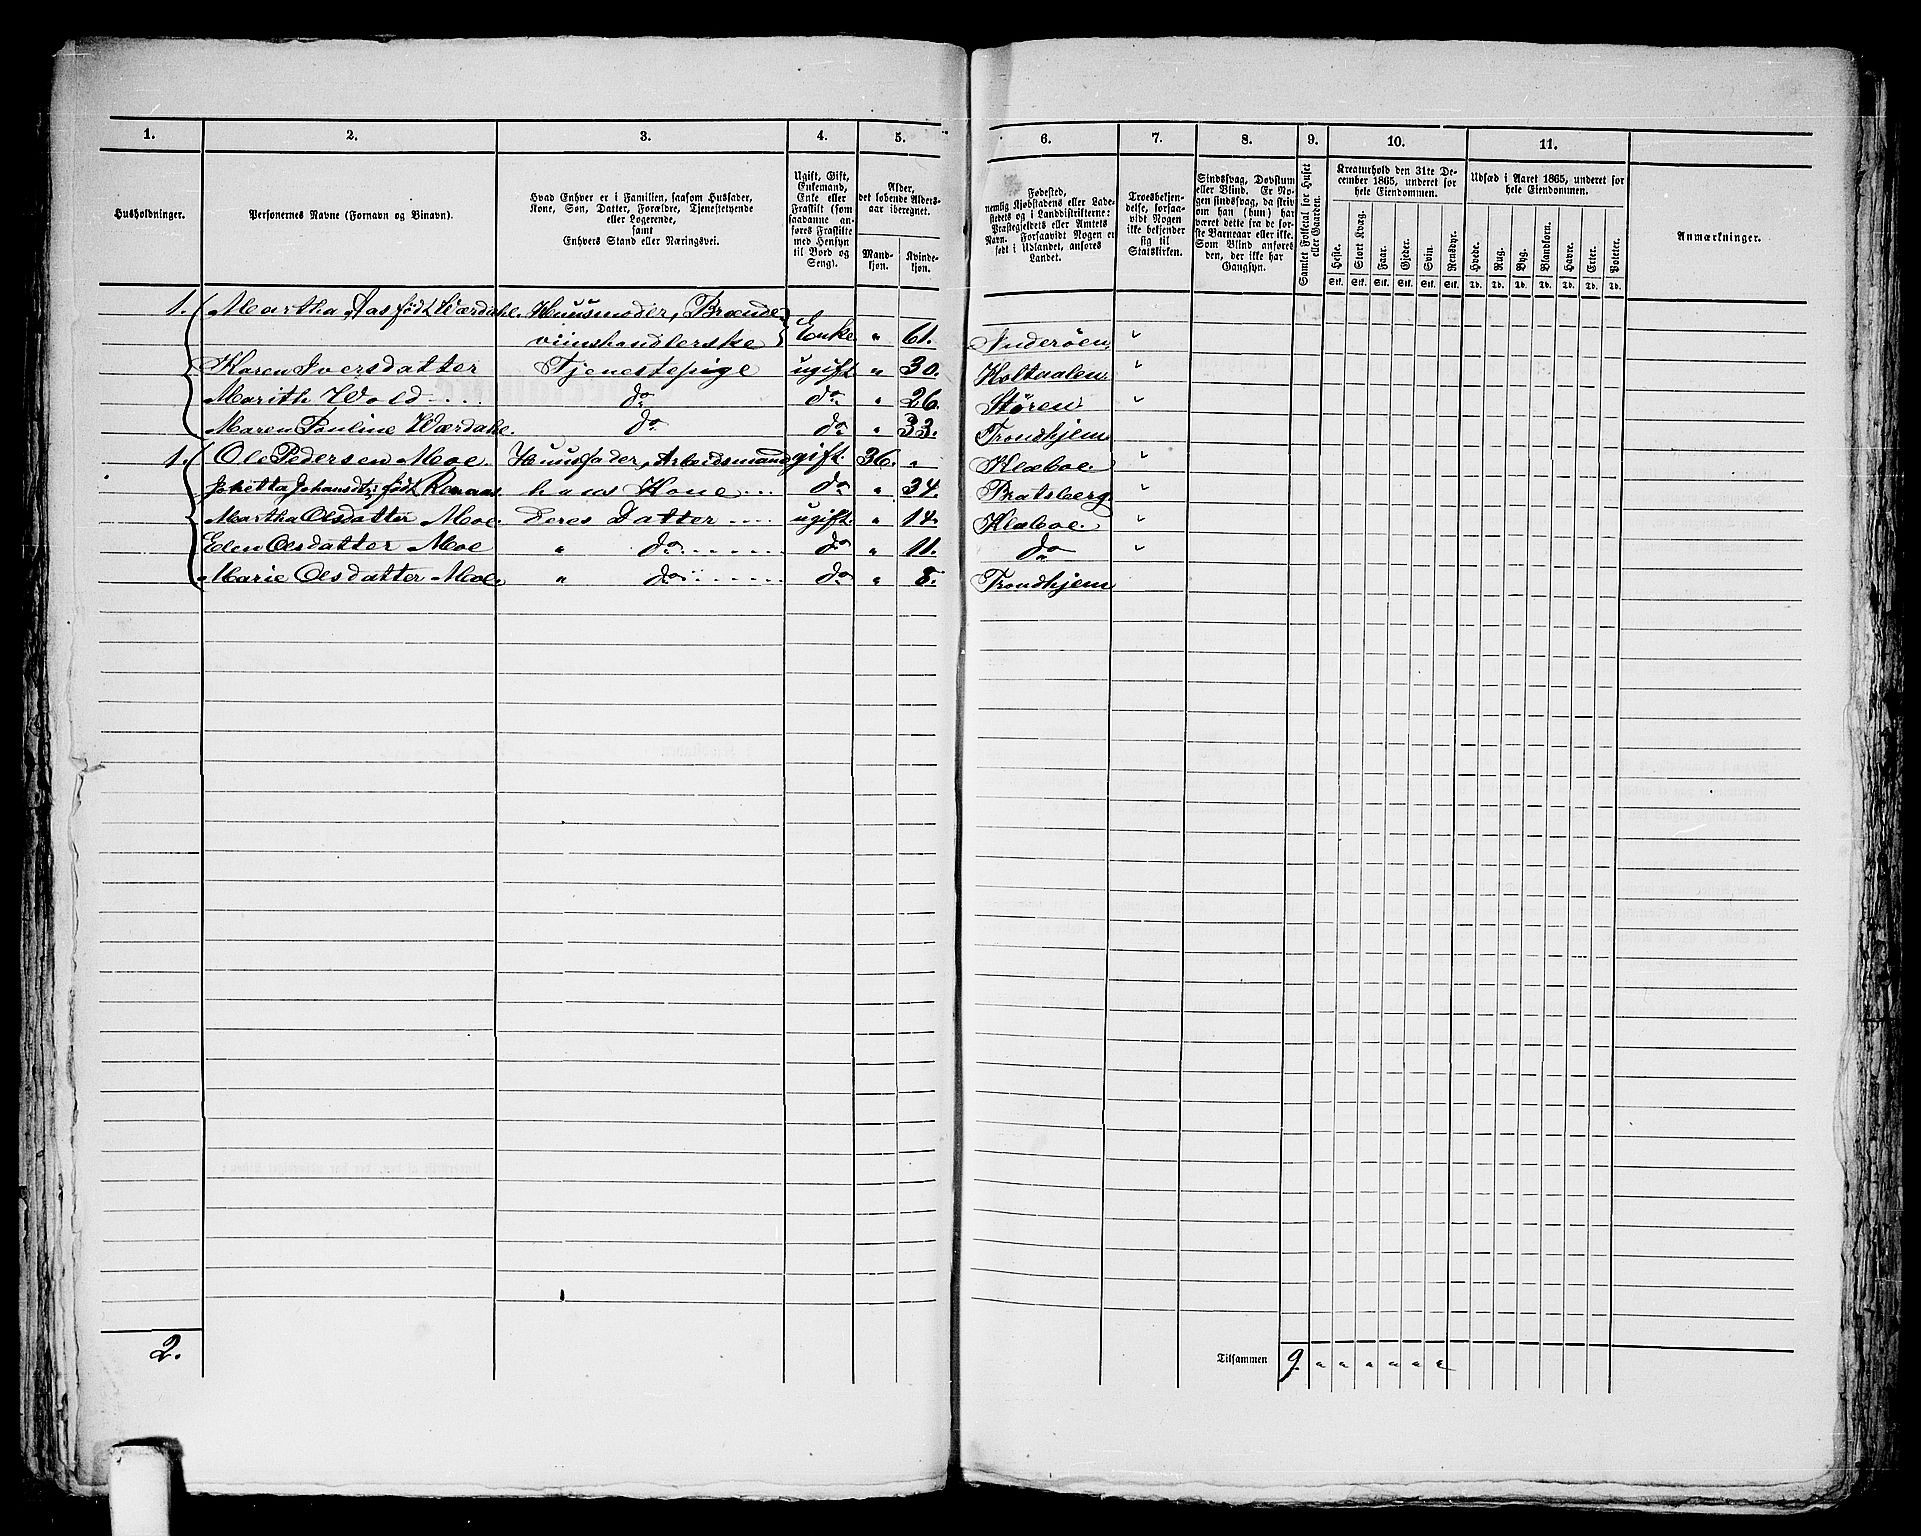 1. 2. 3. 4. 5. 6. 7. 8. 9. 10. 11.
Husholdninger.
Personernes Navne (Fornavn og Binavn).
Hvad Enhver er i Familien, saasom Husfader,
Kone, Søn, Datter, Forældre, Tjenestetyende
eller Logerende,
samt
Enhvers Stand eller Næringsvei.
Ugift, Gift,
Enkemand,
Enke eller
Fraskilt (som
saadanne an-
føres Fraskilte
med Hensyn
til Bord og
Seng).
Alder,
det løbende Alders-
aar iberegnet.
Mand-
kjøn.
Kvinde-
kjøn.
Fødested,
nemlig Kjøbstadens eller Lade-
stedets og i Landdistrikterne:
Præstegjeldets eller Amtets
Navn. Forsaavidt Nogen er
født i Udlandet, anføres
Landet.
Troesbekjen-
delse, forsaa-
vidt Nogen
ikke bekjender
sig til
Statskirken.
Sindssvag, Døvstum
eller Blind. Er No-
gen sindssvag, da skriv
om han (hun) har
været dette fra de for-
ste Barneaar eller ikke.
Som Blind anføres
den, der ikke har
Gangsyn.
Samlet Folketal for Huset
eller Gaarden.
Kreaturhold den 31te De-
cember 1865, underet for
hele Eiendommen.
Heste. Stort Kvæg. Faar. Gjeder. Svin. Rensdyr.
Stk. Stk. Stk. Stk. Stk. Stk.
Udsæd i Aaret 1865, underet for
hele Eiendommen.
Hvede. Rug. Byg. Blandkorn. Havre. Erter. Poteter.
Td. Td. Td. Td. Td. Td. Td.
Anmærkninger.
1. Martha Aas født Værdahl. Huusmoder, Brænde-
viinshandlerske Enke " 61. Inderøen "
Karen Iversdatter Tjenestepige ugift " 30. Holtaalen "
Marith Wold do do " 26. Støren "
Maren Pauline Værdahl. do do " 33. Trondhjem
1. Ole Pedersen Moe. Huusfader, Arbeidsmand gift. 36. " Klæboe. "
Johansdtr født hans Kone do " 34. Bratsberg. "
Martha Olsdatter Moe. deres Datter ugift. " 14. Klæboe. "
Elen Olsdatter Moe " do do " 11. do "
Marie Olsdatter Moe. " do do " 8. Trondhjem
2. Tilsammen 9. " " " " " "